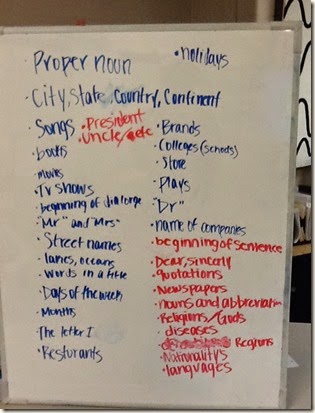 Proper noun
• holidays
• City, State, Country, Continent
• Songs
• President
• Uncle/etc
• books
• movies
• TV shows
• beginning of dialorge
• "Mr" and "Mrs"
• Street names
• lakes, oceans
• words in a title
• Days of the week
• Months
• The letter I
• Resturants
• Brands
• Colleges (schools)
• Store
• Plays
• "Dr"
• name of companies
• beginning of sentence
• Dear, sincerly
• quotations
• Newspapers
• nouns and abbreviation
• Religions/Gods
• diseases
• Regions
• Nationality's
• languages